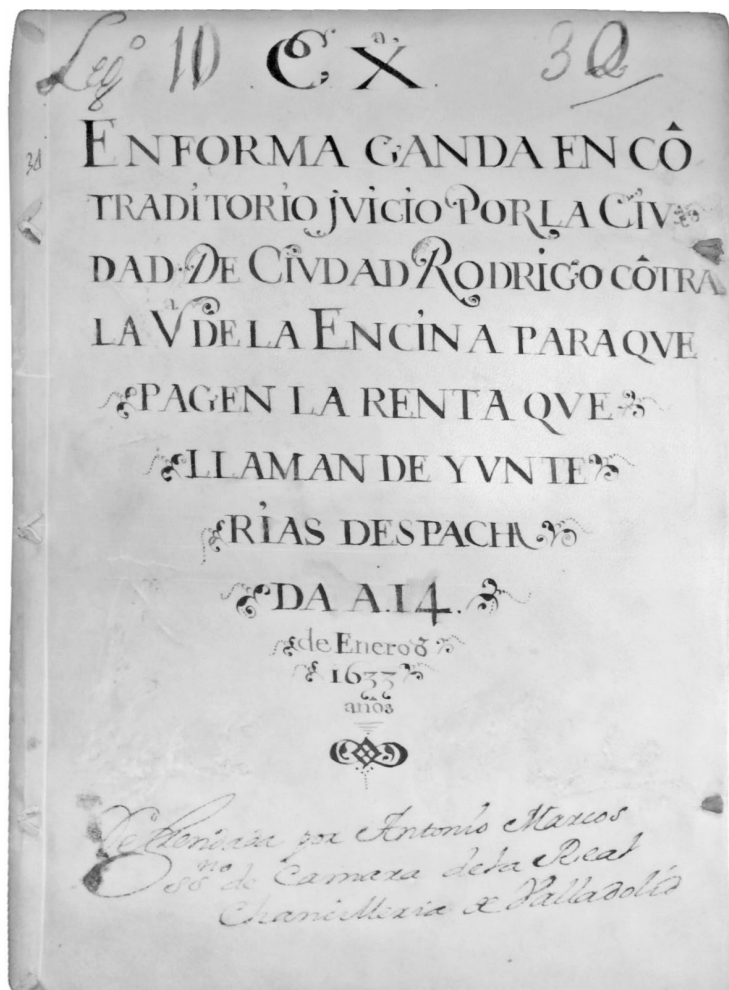 Legº 10 Cª X. 32
38
ENFORMA GANDA EN CÔ
TRADITORIO JVICIO POR LA CIV
DAD DE CIVDAD RODRIGO CÔTRA
LA Vª DE LA ENCINA PARA QVE
PAGEN LA RENTA QVE
LLAMAN DE YVNTE
RIAS DESPACHA
DA A.14.
de Enero đ
1633
años
Refrendada por Antonio Marcos
ssnº de Camara dela Real
Chancilleria đ Valladolid